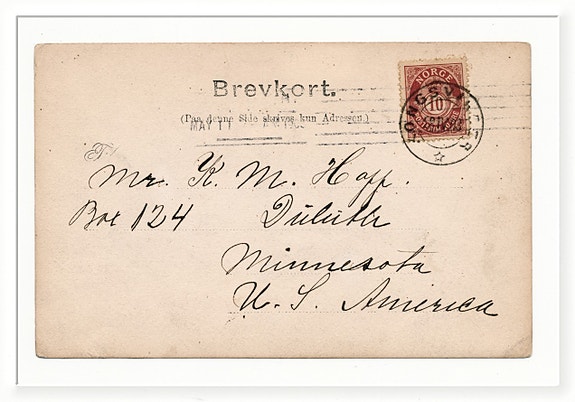 Brevkort.
(Paa denne Side skrives kun Adressen.)
NORGE
10
KONGSVINGER
MAY 11
Til
Mr. K. M. Hopp.
Box 124 Duluth
Minnesota
U. S. America